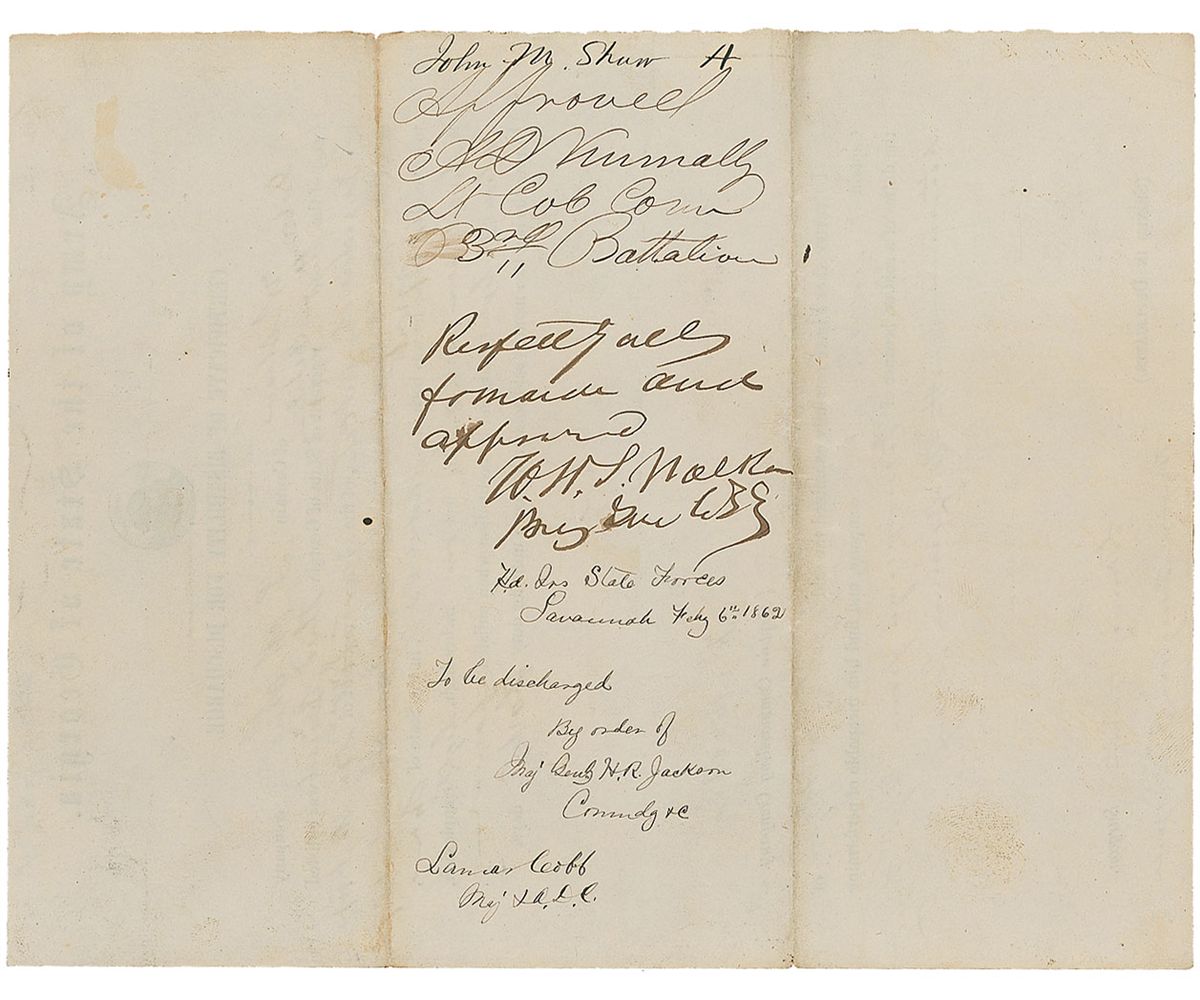 John M. Shaw A
Approved
A D Nunnally
Lt Col Com
3rd Battalion
Respectfully
forward and
approved
W. H. T. Walker
Brig Gen
Hd. Qrs State Forces
Savannah Feby 6th 1862
To be discharged
By order of
Maj Genl H. R. Jackson
Comndg &c
Lamar Cobb
Maj & A. D. C.